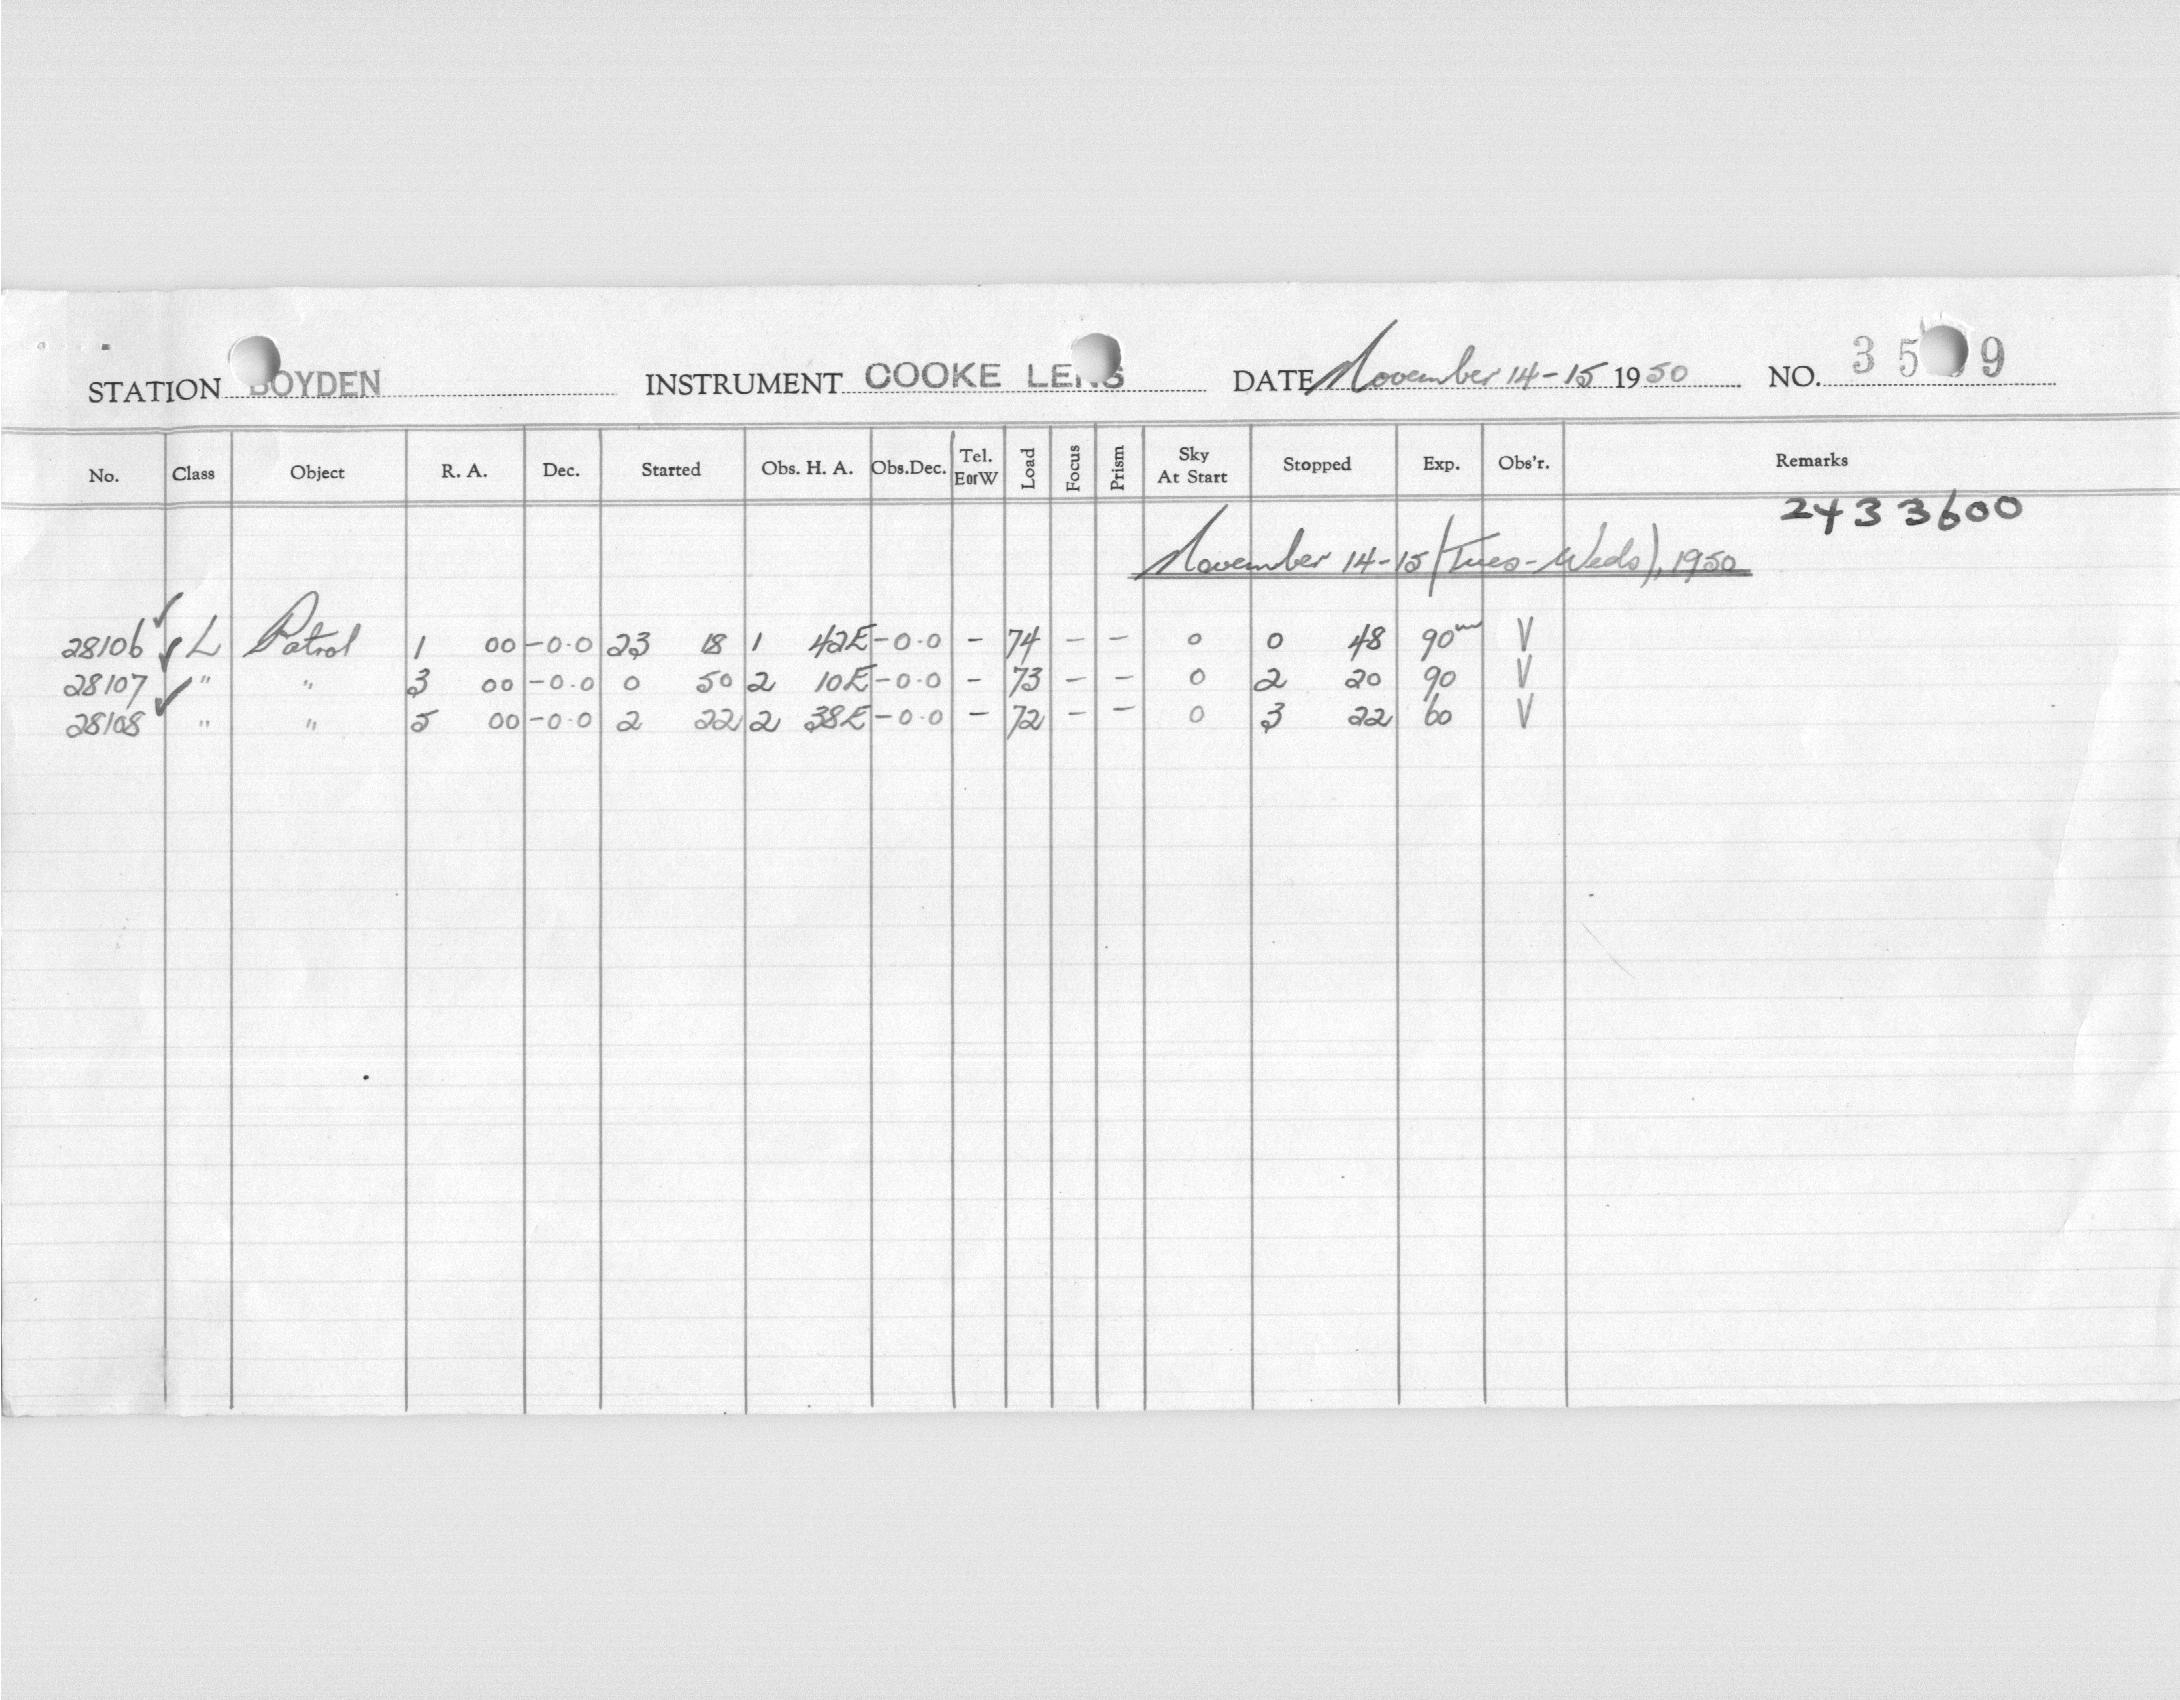 STATION BOYDEN INSTRUMENT COOKE LENS DATE November 14-15 1950 NO. 35 9
No. Class Object R. A. Dec. Started Obs. H. A. Obs.Dec. Tel. E or W Load Focus Prism Sky At Start Stopped Exp. Obs'r. Remarks
2433600
November 14-15 (Tues-Weds), 1950
28106 ✓ L Patrol 1 00 -0.0 23 18 1 42E -0.0 - 74 - - 0 0 48 90m V
28107 ✓ " " 3 00 -0.0 0 50 2 10E -0.0 - 73 - - 0 2 20 90 V
28108 ✓ " " 5 00 -0.0 2 22 2 38E -0.0 - 72 - - 0 3 22 60 V